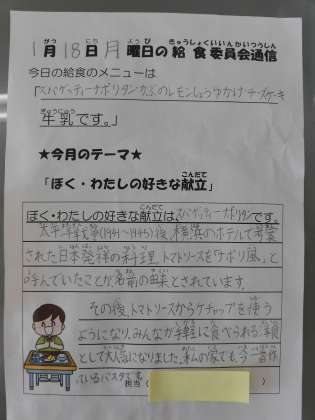 1月18日月曜日の給食委員会通信
今日の給食のメニューは
「スパゲッティーナポリタン かぶのレモンしょうゆかけ チーズケーキ
牛乳です。」
★今月のテーマ★
「ぼく・わたしの好きな献立」
ぼく・わたしの好きな献立は、スパゲッティーナポリタンです。
太平洋戦争(1941〜1945)後、横浜のホテルで考案
された日本発祥の料理、トマトソースを「ナポリ風」と
呼んでいたことが、名前の由来とされています。
その後、トマトソースからケチャップを使う
ようになり、みんなが手軽に食べられる洋食
として大人気になりました。私の家でも、今一番作
っているパスタです
担当(
)